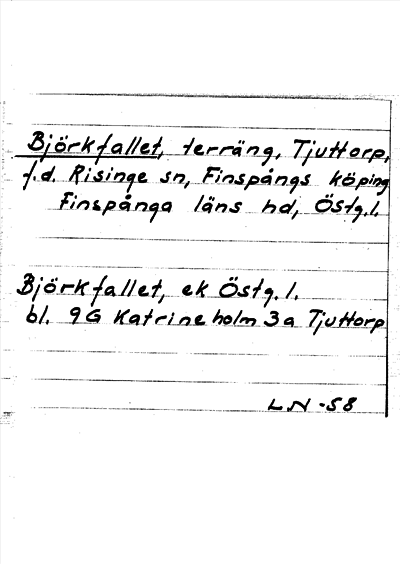 Björkfallet, terräng, Tjuttorp,
f.d. Risinge sn, Finspångs köping
Finspånga läns hd, Östg.l.
Björkfallet, ek Östg.l.
bl. 9G Katrineholm 3a Tjuttorp
LN -58